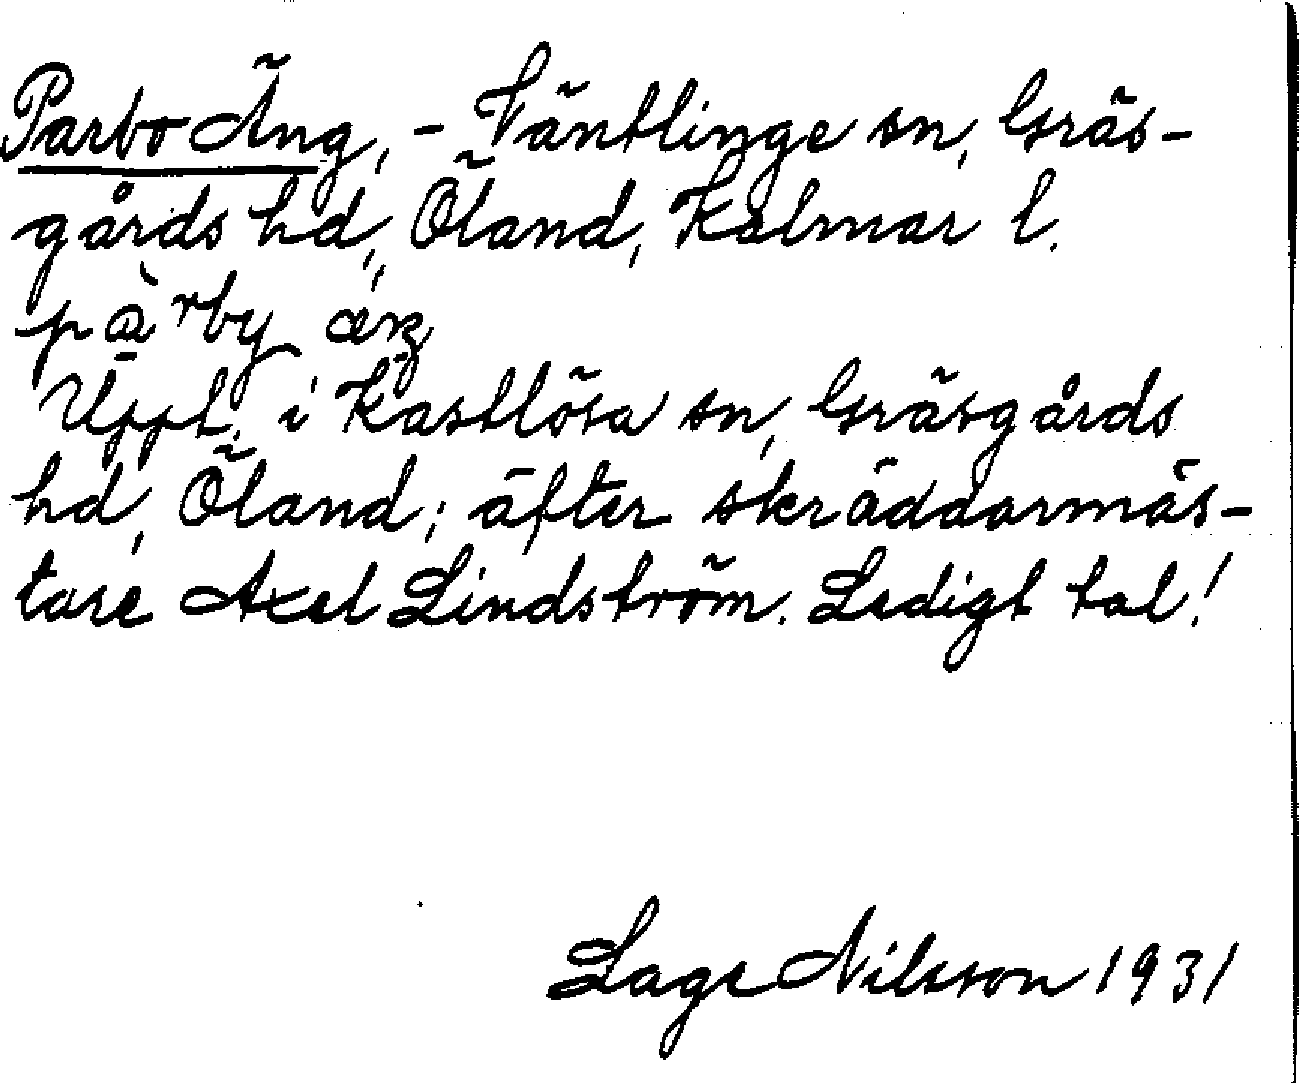 Parbo Äng, - Väntlinge sn, Gräs-
gårds hd, Öland, Kalmar l.
Uppt. i Kastlösa sn, Gräsgårds
hd, Öland; äfter skräddarmäs-
tare Axel Lindström. Ledigt tal!
Lage Nilsson 1931